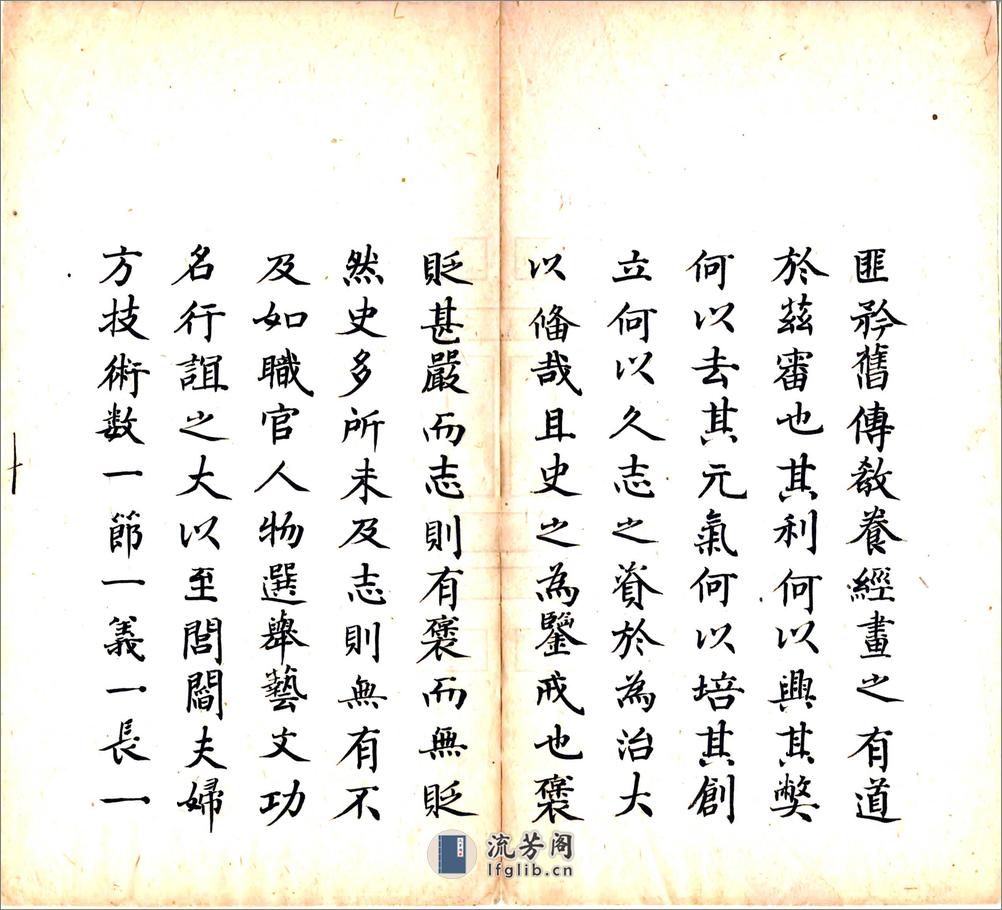 匪矜舊傳教養經畫之有道
於茲審也其利何以興其獘
何以去其元氣何以培其創
立何以久志之資於為治大
以俻哉且史之為鑒戒也褒
貶甚嚴而志則有褒而無貶
然史多所未及志則無有不
及如職官人物選舉藝文功
名行誼之大以至閭閻夫婦
方技術数一節一義一長一
流芳阁
lfglib.cn